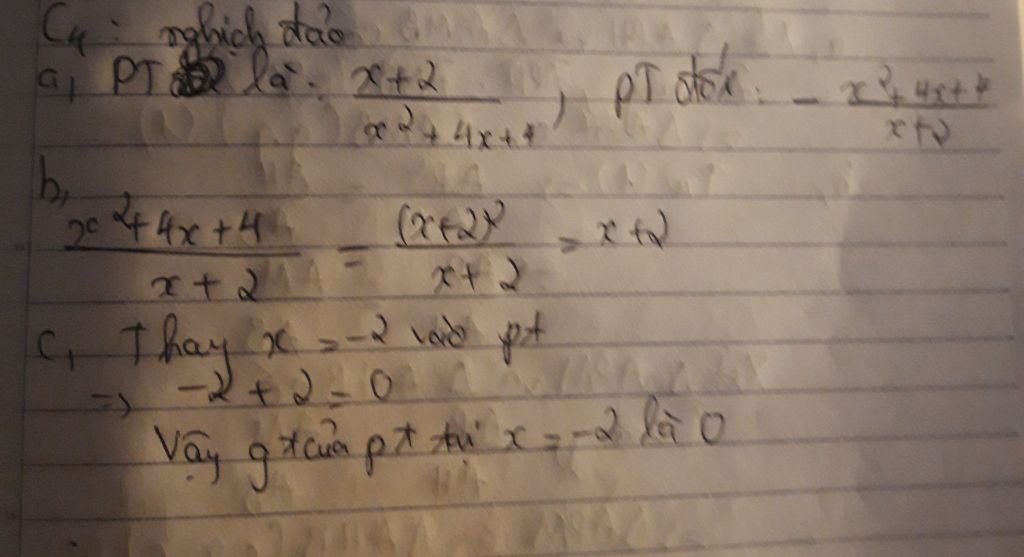 C₄: nghịch đảo
a, PT là: (x+2)/(x²+4x+4), PT đối: -(x²+4x+4)/(x+2)
b,
(x²+4x+4)/(x+2) = (x+2)²/(x+2) = x+2
c, Thay x = -2 vào pt
=> -2 + 2 = 0
Vậy gt của pt tại x = -2 là 0